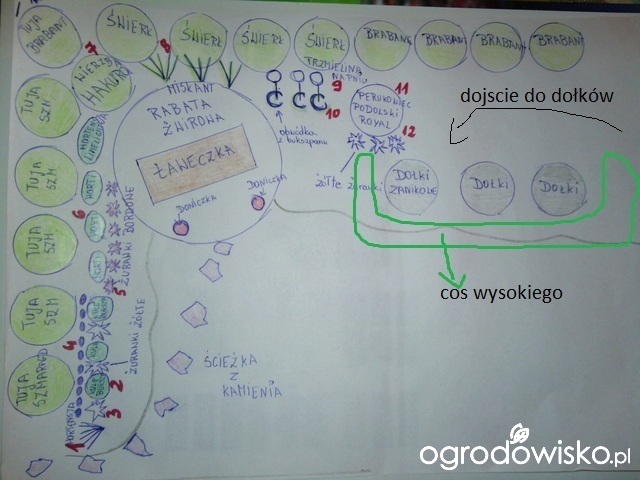 TUJA
BRABANT
ŚWIERK
ŚWIERK
ŚWIERK
ŚWIERK
BRABANT
BRABANT
BRABANT
BRABANT
7
8
WIERZBA
HAKURO
TRZMIELINA
NA PNIU
9
11
MISKANT
RABATA
ŻWIROWA
ŁAWECZKA
DONICZKA
DONICZKA
10
obwódka
z bukszpanu
PERUKOWIEC
PODOLSKI
ROYAL
12
dojscie do dołków
TUJA
SZM
HORTENSJA
LIMELLIGHT
TUJA
SZM
HORTI
6
ŻURAWKI BORDOWE
żółte żurawki
DOŁKI
ZANIKOLE
DOŁKI
DOŁKI
TUJA
SZM
HORTI
HORTI
5
cos wysokiego
TUJA
SZM
4
ŻURAWKI ŻÓŁTE
TUJA
SZMARAGD
2
3
1
ŚCIEŻKA
Z
KAMIENIA
ogrodowisko.pl